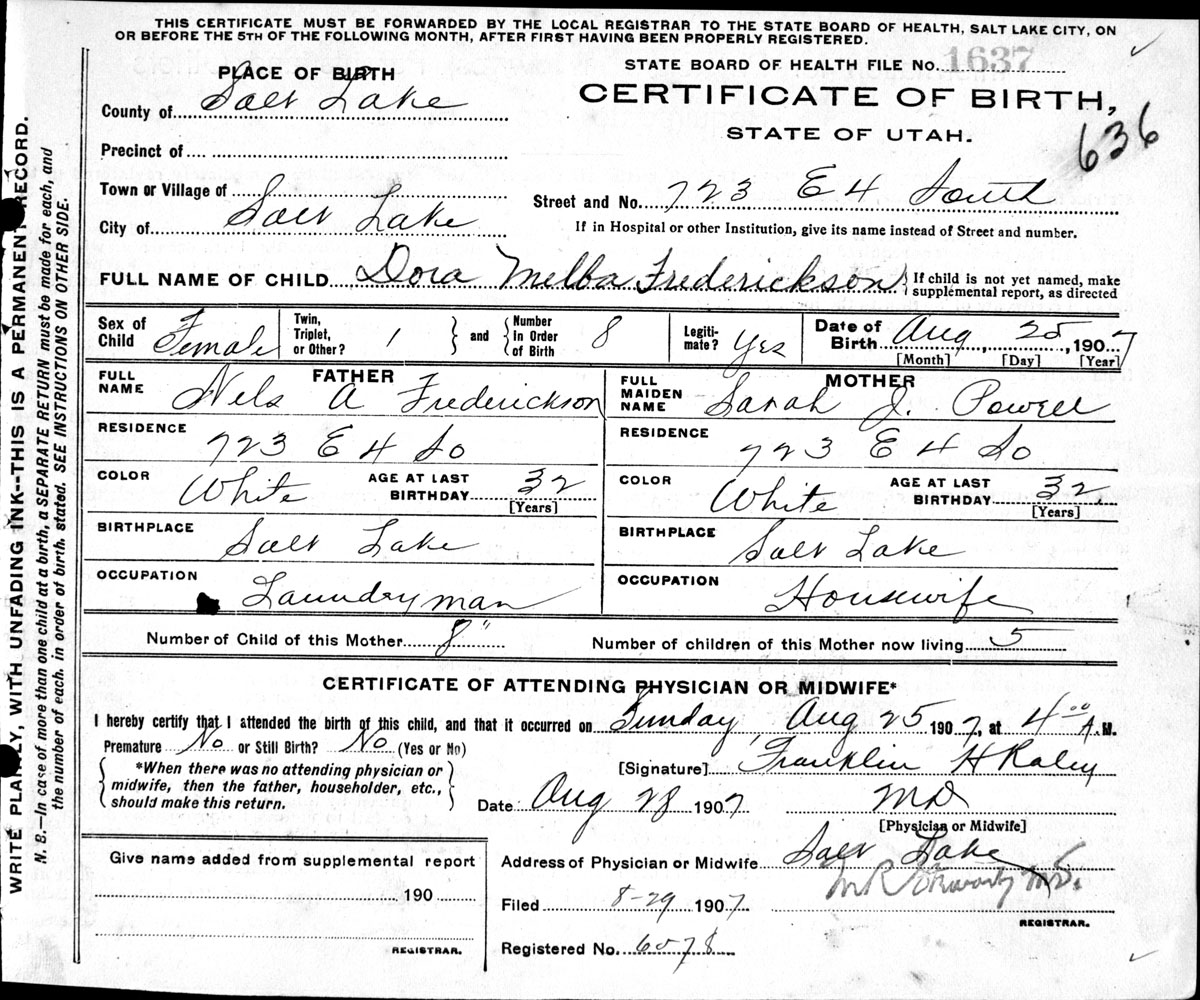 THIS CERTIFICATE MUST BE FORWARDED BY THE LOCAL REGISTRAR TO THE STATE BOARD OF HEALTH, SALT LAKE CITY, ON
OR BEFORE THE 5TH OF THE FOLLOWING MONTH, AFTER FIRST HAVING BEEN PROPERLY REGISTERED.
STATE BOARD OF HEALTH FILE NO. 1637
CERTIFICATE OF BIRTH,
STATE OF UTAH.
636
PLACE OF BIRTH
County of Salt Lake
Precinct of
Town or Village of
City of Salt Lake
Street and No. 723 E 4 South
If in Hospital or other Institution, give its name instead of Street and number.
FULL NAME OF CHILD Dora Melba Frederickson
If child is not yet named, make
supplemental report, as directed
Sex of Child Female
Twin, Triplet, or Other? 1 and Number in Order of Birth 8
Legitimate? Yes
Date of Birth Aug 25, 1907
[Month] [Day] [Year]
FATHER
FULL NAME Nels A Frederickson
RESIDENCE 723 E 4 So
COLOR White AGE AT LAST BIRTHDAY 32
[Years]
BIRTHPLACE Salt Lake
OCCUPATION Laundryman
MOTHER
FULL MAIDEN NAME Sarah J. Powell
RESIDENCE 723 E 4 So
COLOR White AGE AT LAST BIRTHDAY 32
[Years]
BIRTHPLACE Salt Lake
OCCUPATION Housewife
Number of Child of this Mother 8" Number of children of this Mother now living 5
CERTIFICATE OF ATTENDING PHYSICIAN OR MIDWIFE*
I hereby certify that I attended the birth of this child, and that it occurred on Sunday, Aug 25 1907, at 4 00 A.M.
Premature No or Still Birth? No (Yes or No)
*When there was no attending physician or
midwife, then the father, householder, etc.,
should make this return.
[Signature] Franklin H Raley
Date Aug 28 1907 MD
[Physician or Midwife]
Give name added from supplemental report
190
REGISTRAR.
Address of Physician or Midwife Salt Lake
Filed 8-29 1907
REGISTRAR.
Registered No. 6078
WRITE PLAINLY, WITH UNFADING INK--THIS IS A PERMANENT RECORD.
N. B.—In case of more than one child at a birth, a SEPARATE RETURN must be made for each, and
the number of each, in order of birth, stated. SEE INSTRUCTIONS ON OTHER SIDE.